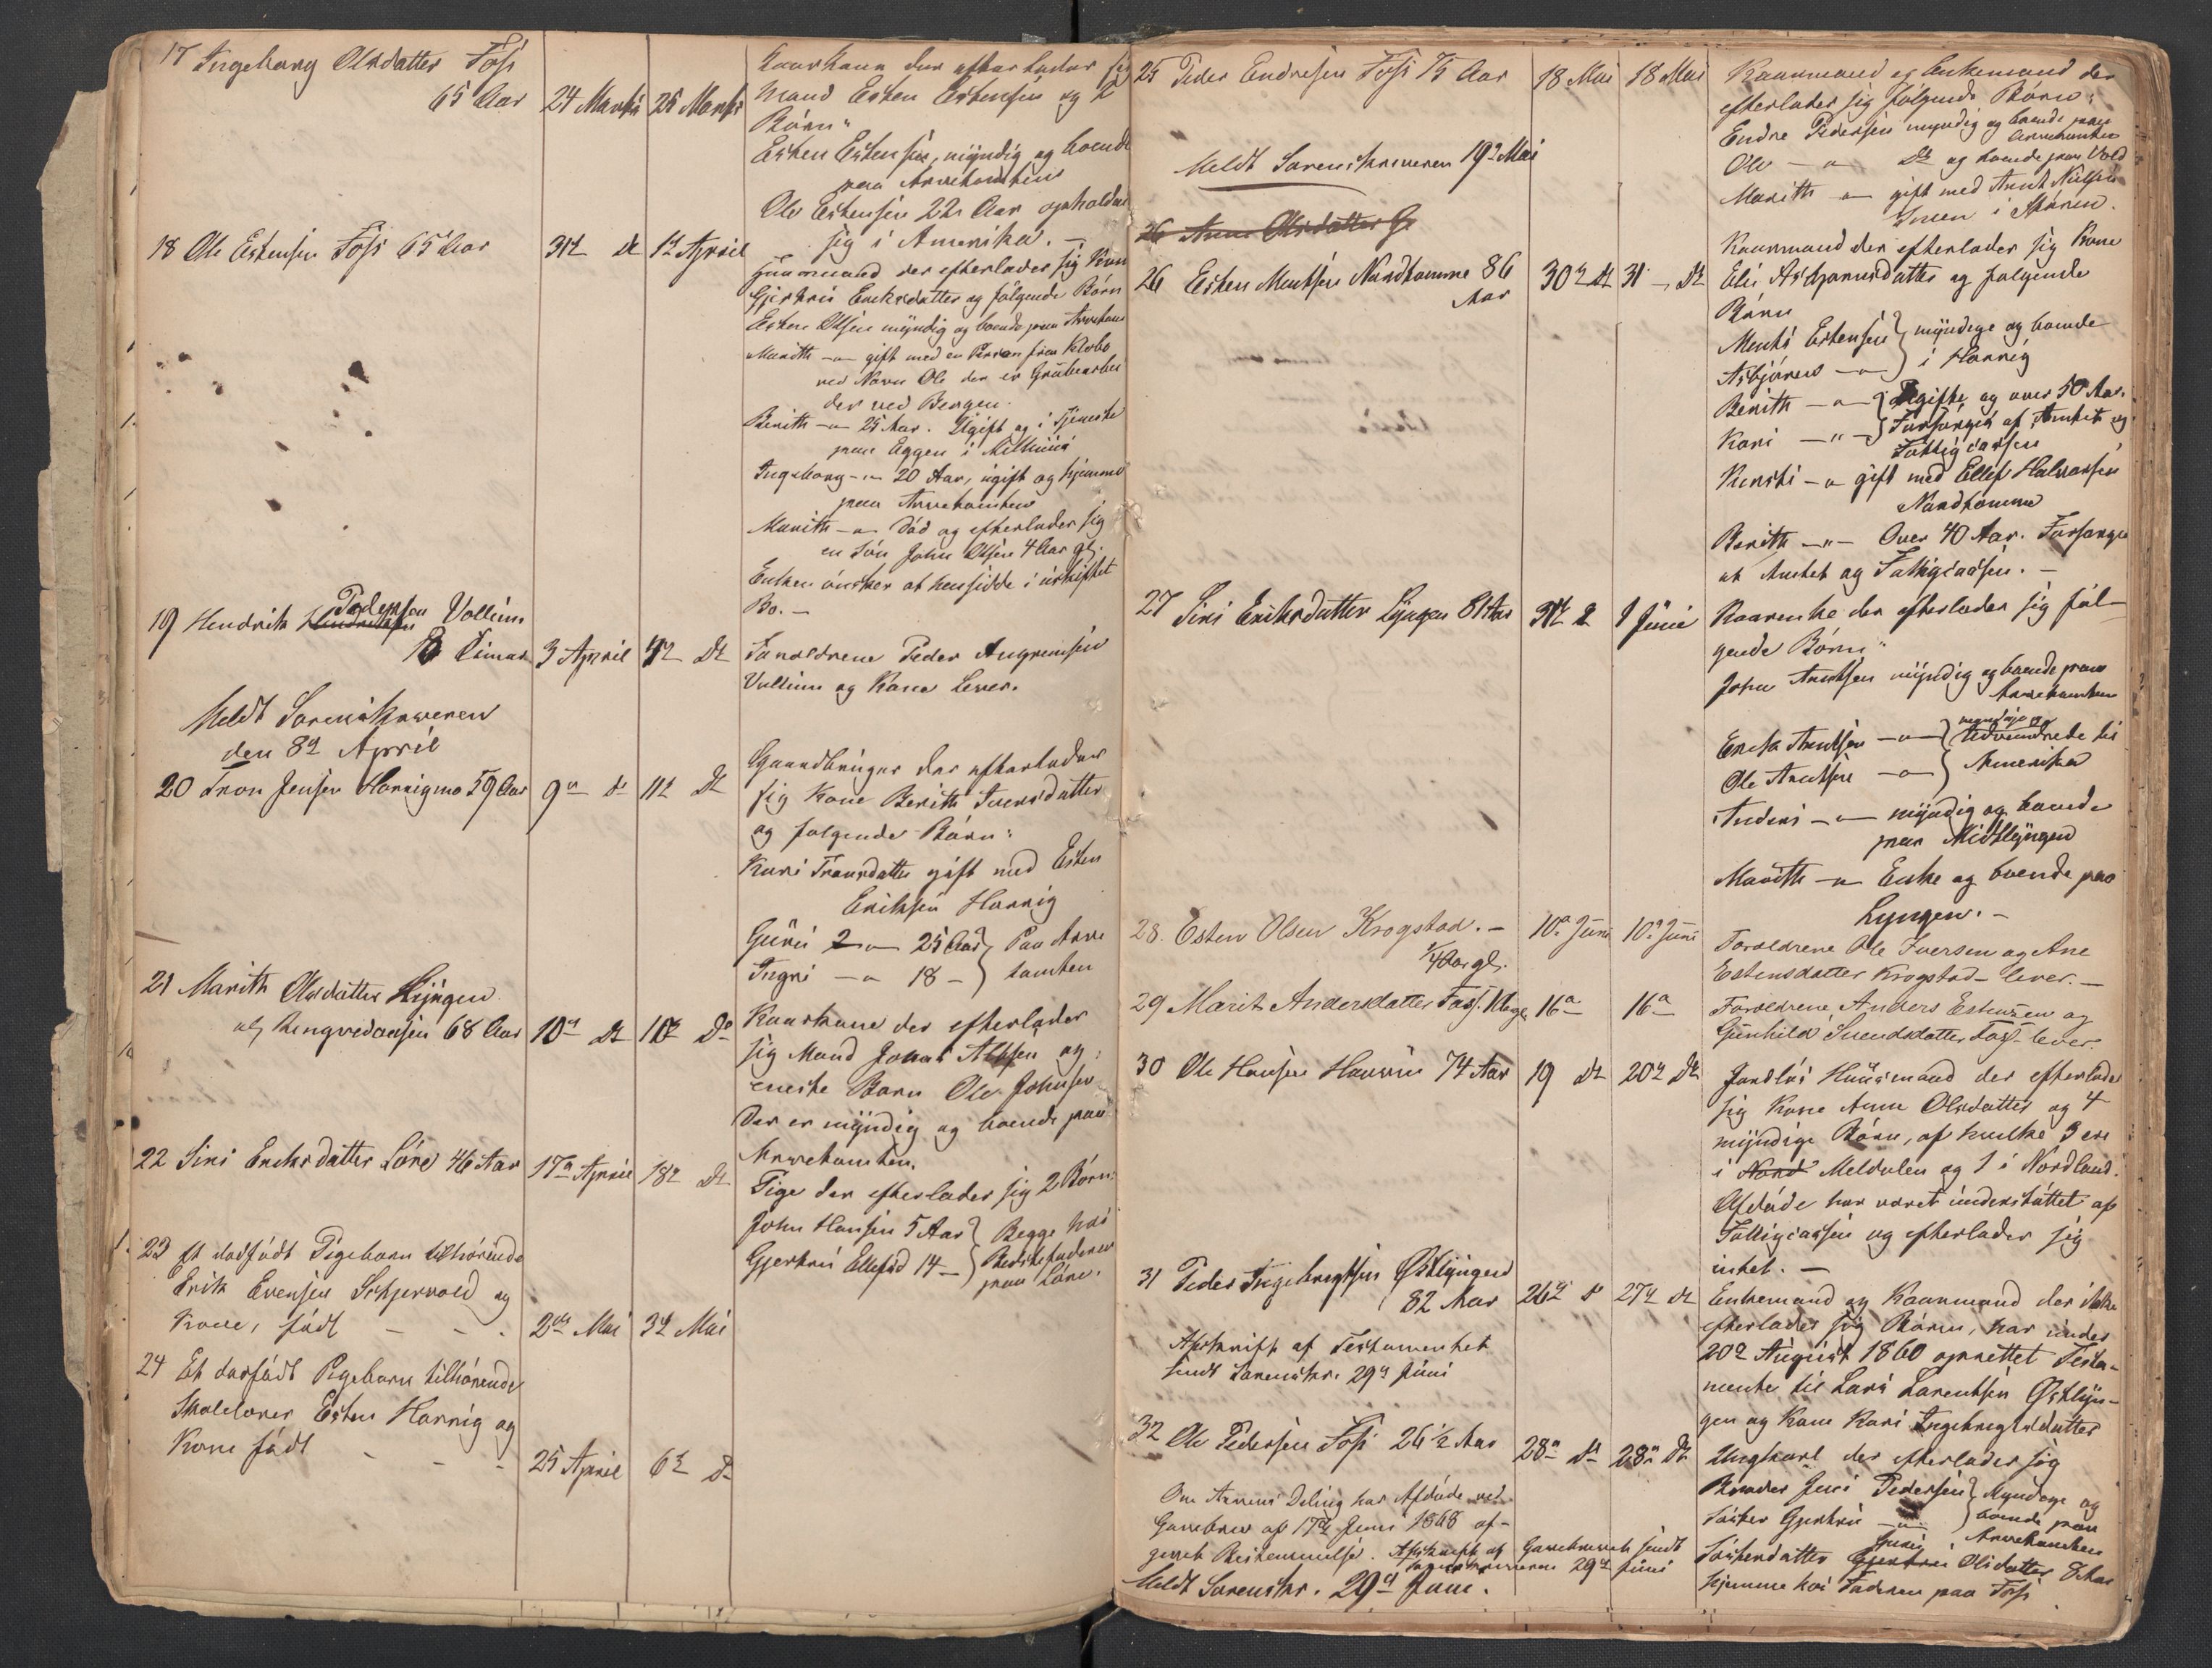 17 Ingeborg Olsdatter Foss
65 Aar 24 Marts 25 Marts
Kaarkone der efterlader sig
Mand Esten Estensen og 2
Børn:
Esten Estensen, myndig og boende
paa Arvetomten
Ole Estensen 22 Aar opholder
sig i Amerika. —
18 Ole Estensen Foss 65 Aar 31te Dt 1te April
Huusmand der efterlader sig Kone
Gjertrú Eriksdatter og følgende Børn
Esten Olsen myndig og boende paa Arvetom
Marith — " — gift med en Person fra Klæbo
ved Navn Ole der er Grubearbei
der ved Bergen.
Berith — " — 25 Aar. Ugift og i Tjeneste
paa Eggen i
Ingeborg — " — 20 Aar, ugift og hjemme
paa Arvetomten
Marith — " — Død og efterlader sig
en Søn John Olsen 4 Aar gl.
Enken ønsker at hensidde i uskiftet
Bo. —
19 Hendrik Pedersen Vollum
Timar 3 April 4de Dt
Forældrene Peder Angrimsen
Vollum og Kone Lever.
Meldt Sorenskriveren
den 8de April
20 Tron Jensen Horrigmo 59 Aar 9de Dt 11te Dt
Gaardbruger der efterlader
sig Kone Berith Iversdatter
og følgende Børn:
Kari Tronsdatter gift med Esten
Eriksen Horrig
Guru — " — 25 Aar } Paa Arve
Ingri — " — 18 — } tomten
21 Marith Olsdatter Lyngen
68 Aar 10de Dt Dt
Kaarkone der efterlader
sig Mand og
eneste Barn Ole Johnsen
Der er myndig og boende paa
Arvetomten.
22 Siri Eriksdatter Løre 46 Aar 17de April 18de Dt
Pige der efterlader sig 2 Børn:
John Hansen 5 Aar } Begge hos
Gjertrú Ellefsd 14 — } Bedsteforældrene
paa Løre.
23 Et dødfødt Pigebarn tilhørende
Erik Evensen Skjervold og
Kone, født — — . 2den Mai 3de Mai
24 Et dødfødt Pigebarn tilhørende
Skolelærer Esten Horrig og
Kone født — — — 25 April 6te Dt
25 Peder Endresen Foss 75 Aar 18 Mai 18 Mai
Kaarmand og Enkemand der
efterlader sig følgende Børn:
Endre Pedersen myndig og boende paa
Arvetomten
Ole — " — Dt og boende paa Vold
Marith — " — gift med Arnt Nielsen
i
Meldt Sorenskriveren 19de Mai
26 Anne Olsdatter G
26 Esten Mentsen Nordtømme 86
Aar 30te Dt 31 — Dt
Kaarmand der efterlader sig Kone
Eli Asbjørnsdatter og følgende
Børn
Ments Estensen } myndige og boende
Asbjørn — " — } i Horrig
Berith — " — } Ugifte og over 50 Aar.
Kari — " — } Forsørges af Amtet og
Fattigcassen
Kirsti — " — gift med Ellef Halvorsen
Nordtømme
Berith — " — Over 40 Aar. Forsørges
af Amtet og Fattigcassen. —
27 Siri Eriksdatter Lyngen 81 Aar 31te 1 Juni
Kaarenke der efterlader sig føl-
gende Børn:
John Arntsen myndig og boende paa
Arvetomten
myndige og
Erik Arntsen — " — } Udvandrede til
Ole Arntsen — " — } Amerika
Anders — " — myndig og boende
paa Midtlyngen
Marith — " — Enke og boende paa
Lyngen. —
28. Esten Olsen Krogstad. —
1/4 Aar gl. 10de Juni 10de Juni
Forældrene Ole Iversen og Ane
Estensdatter Krogstad — lever. —
29 Marit Andersdatter Foss. 16de 16de
Forældrene, Anders Estensen og
Gunhild Svendsdatter Foss — lever.
30 Ole Hansen 74 Aar 19 Dt 20de Dt
Jordløs Huusmand der efterlader
sig Kone Anne Olsdatter og 4
myndige Børn, af hvilke 3 ere
i Nord Meldalen og 1 i Nordland.
Afdøde har været understøttet af
Fattigcassen og efterlader sig
intet. —
31 Peder Ingebrigtsen Østlyngen
82 Aar 26de Dt 27de Dt
Enkemand og Kaarmand der ikke
efterlader sig Børn, har under
20de August 1860 oprettet Testa-
mente til Lars Larentsen Østlyn-
gen og Kone Kari Ingebrigtsdatter
Afskrift af Testamentet
sendt Sorenskr. 29de Juni
32 Ole Pedersen Foss 26 1/2 Aar 28de Dt 28de Dt
Ungkarl der efterlader sig
Broder Jens Pedersen } Myndige og
Søster Gjertrú — " — } boende paa
Arvetomten
Søsterdatter Gjertrú Olsdatter 7 Aar
hjemme hos Faderen paa Foss
Om Arvens Deling har Afdøde ved
Gavebrev af 17de Juni 1868 af-
givet Bestemmelse. Afskrift af Gavebrevet sendt
Sorenskriveren 29de Juni
Meldt Sorenskr. 29de Juni.